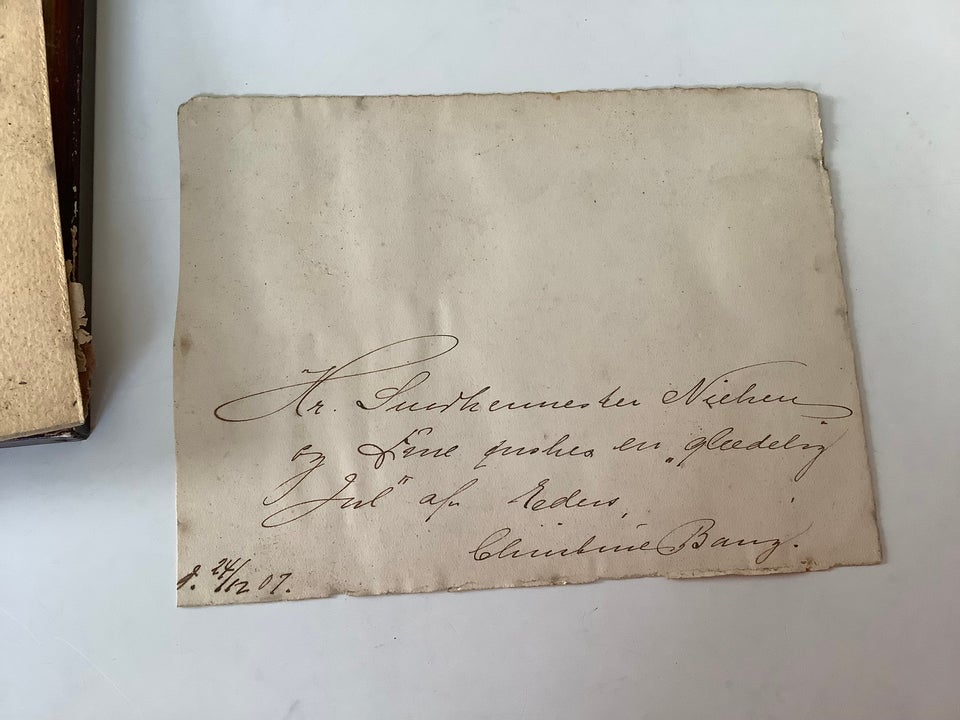 Hr. Snedkermester Nielsen
og Frue ønskes en „glædelig
Jul" af Eders,
Christine Bang.
d. 24/12 07.